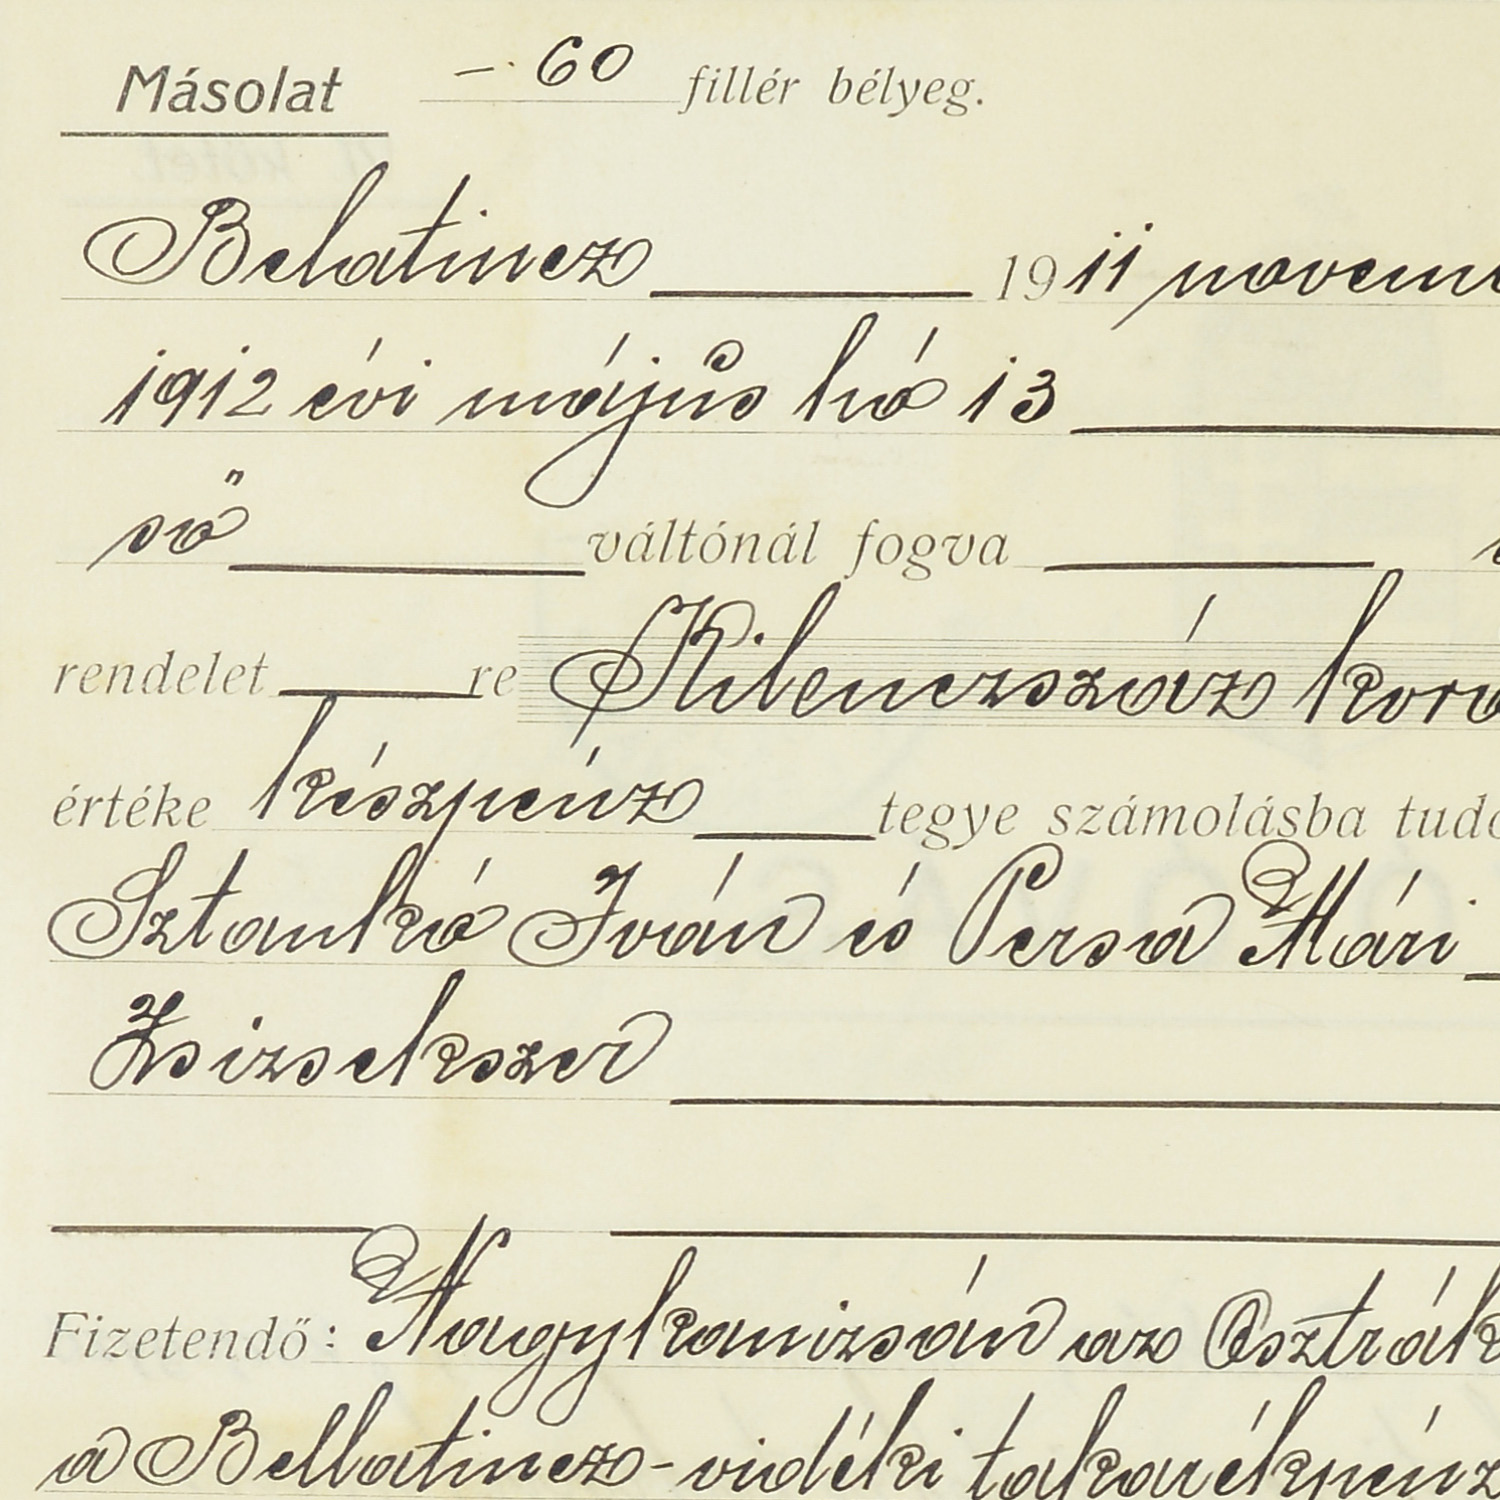 Másolat – 60 fillér bélyeg.
Belatincz 1911 novem
1912 évi május hó 13
ső váltónál fogva
rendelet re Kilenczszáz koro
értéke készpénz tegye számolásba tudó
Sztankó Iván és Persa Mári
Zsizsekszer
Fizetendő: Nagykanizsán az Osztrák
a Bellatincz-vidéki takarékpénz